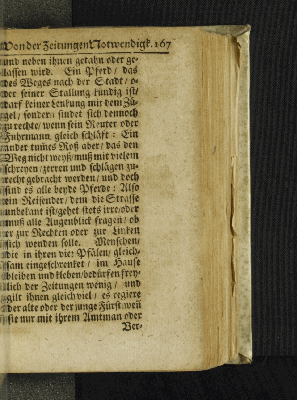 Von der Zeitungen Notwendigk. 167
und neben ihnen getahn oder ge-
lassen wird. Ein Pferd/ das
des Weges nach der Stadt/ o-
der seiner Stallung kündig ist/
darf keiner Lenkung mit dem Zü-
gel/ sondern findet sich dennoch
zu rechte/ wenn sein Reuter oder
Fuhrmann gleich schläft: Ein
ander tumes Roß aber/ das den
Weg nicht weyß/ muß mit vielem
schreyen/ zerren und schlägen zu-
recht gebracht werden/ und doch
sind es alle beyde Pferde: Also
ein Reisender/ dem die Strasse
unbekant ist/ gehet stets irre/ oder
muß alle Augenblick fragen/ ob
er zur Rechten oder zur Linken
sich wenden solle. Menschen/
die in ihren vier Pfälen/ gleich-
sam eingeschrenket/ im Hause
bleiben und kleben/ bedürfen frey-
lich der Zeitungen wenig/ und
gilt ihnen gleich viel/ es regiere
der alte oder der junge Fürst/ wen̄
sie nur mit ihrem Amtman oder
Ver-